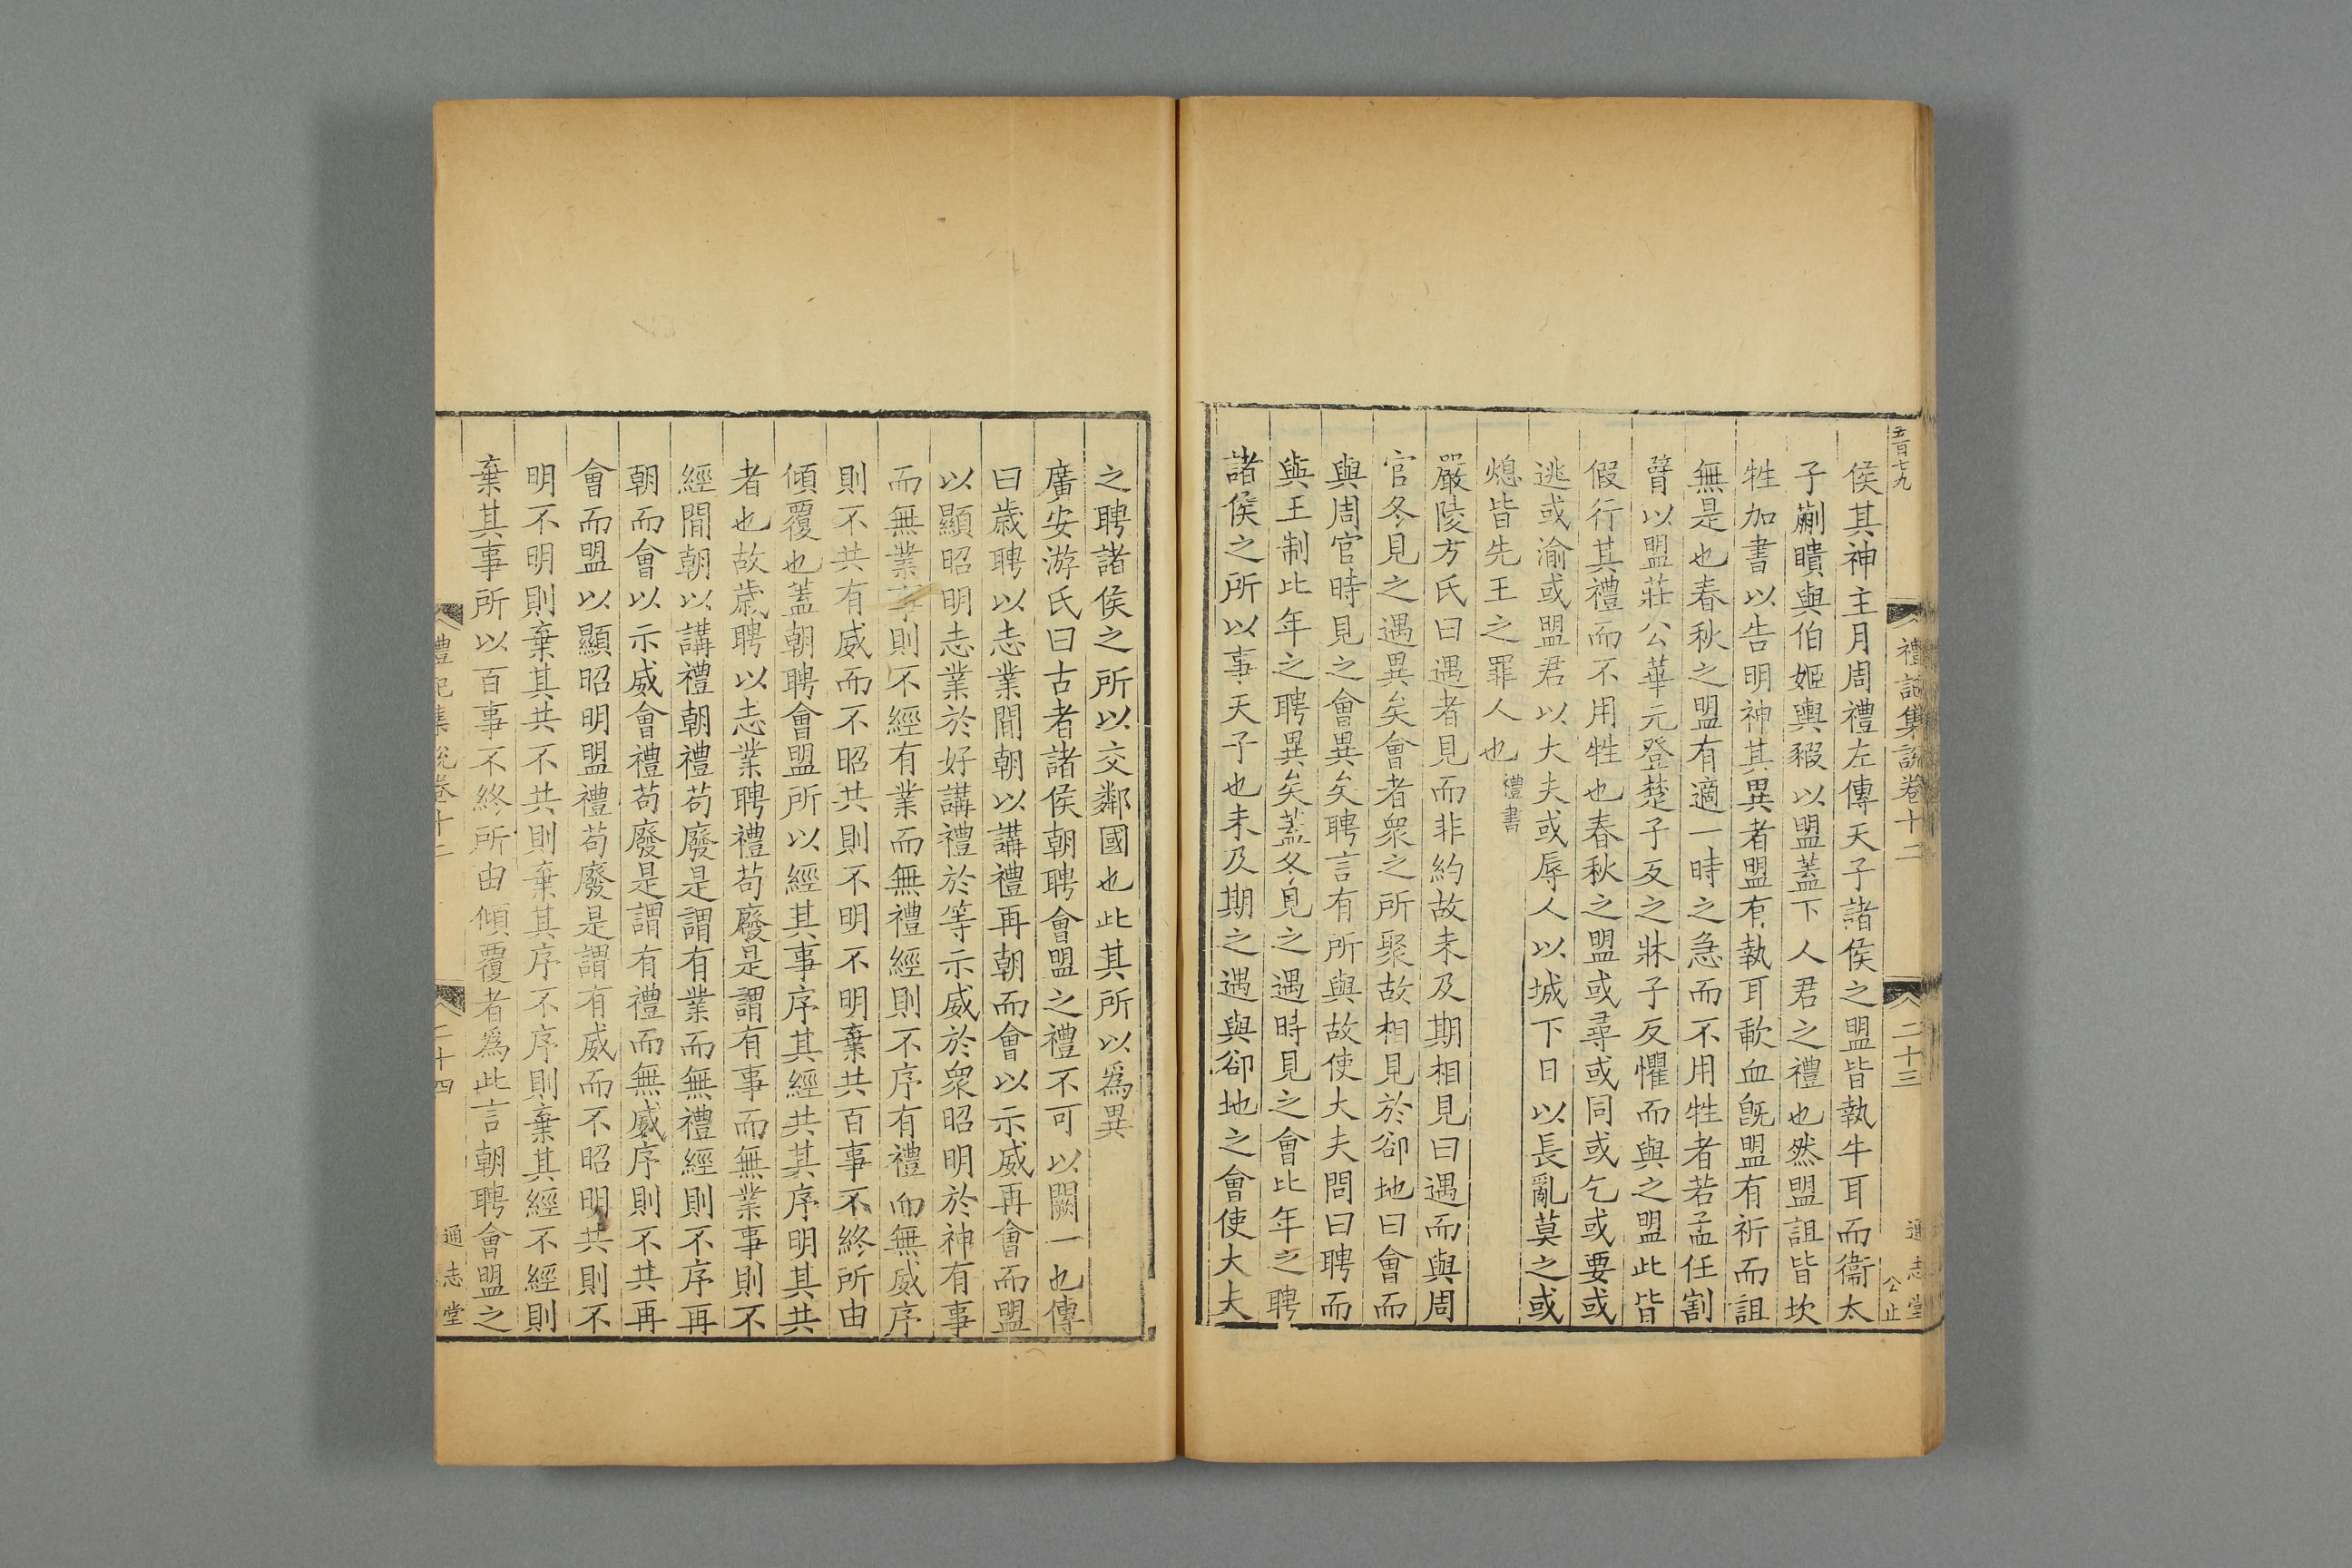 五百七九
禮記集說卷十二
二十三
通志堂
公止
侯其神主月周禮左傳天子諸侯之盟皆執牛耳而衞太
子蒯聵與伯姬輿豭以盟蓋下人君之禮也然盟詛皆坎
牲加書以告明神其異者盟有執耳歃血旣盟有祈而詛
無是也春秋之盟有適一時之急而不用牲者若孟任割
臂以盟莊公華元登楚子反之牀子反懼而與之盟此皆
假行其禮而不用牲也春秋之盟或尋或同或乞或要或
逃或渝或盟君以大夫或辱人以城下日以長亂莫之或
熄皆先王之罪人也禮書
嚴陵方氏曰遇者見而非約故未及期相見曰遇而與周
官冬見之遇異矣會者衆之所聚故相見於郤地曰會而
與周官時見之會異矣聘言有所與故使大夫問曰聘而
與王制比年之聘異矣蓋冬見之遇時見之會比年之聘
諸侯之所以事天子也未及期之遇與郤地之會使大夫
之聘諸侯之所以交鄰國也此其所以爲異
廣安游氏曰古者諸侯朝聘會盟之禮不可以闕一也傳
曰歲聘以志業間朝以講禮再朝而會以示威再會而盟
以顯昭明志業於好講禮於等示威於衆昭明於神有事
而無業事則不經有業而無禮經則不序有禮而無威序
則不共有威而不昭共則不明不明棄共百事不終所由
傾覆也蓋朝聘會盟所以經其事序其經共其序明其共
者也故歲聘以志業聘禮苟廢是謂有事而無業事則不
經間朝以講禮朝禮苟廢是謂有業而無禮經則不序再
朝而會以示威會禮苟廢是謂有禮而無威序則不共再
會而盟以顯昭明盟禮苟廢是謂有威而不昭明共則不
明不明則棄其共不共則棄其序不序則棄其經不經則
棄其事所以百事不終所由傾覆者爲此言朝聘會盟之
禮記集說卷十二
二十四
通志堂